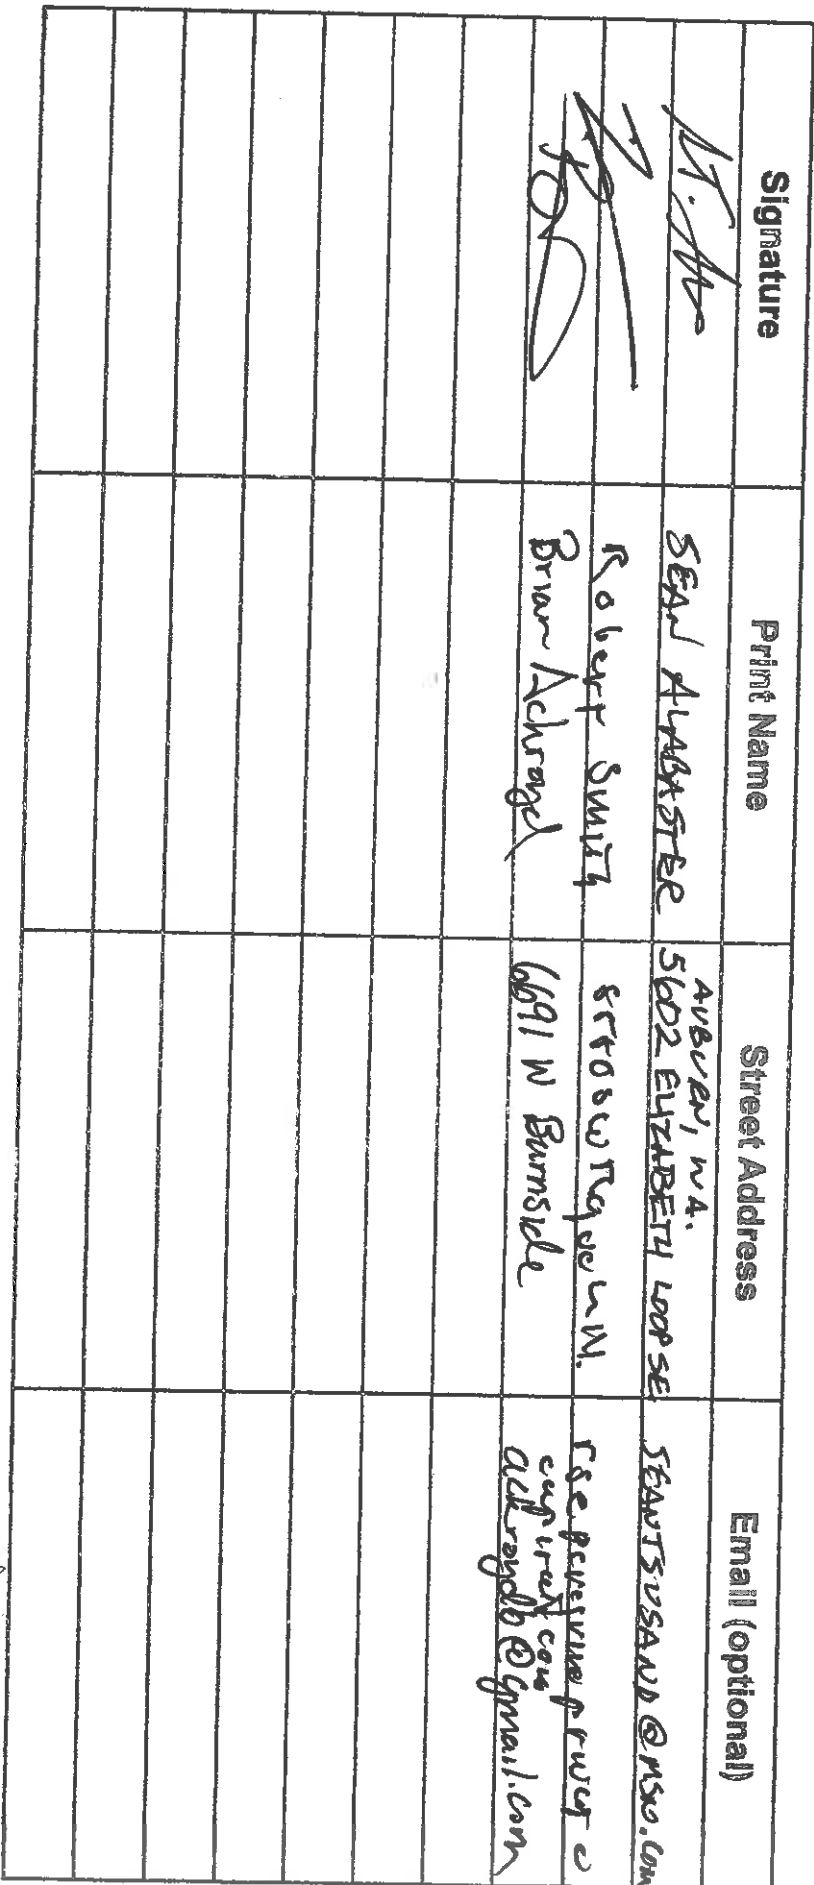 Signature Print Name Street Address Email (optional)
SEAN ALABASTER AUBURN, WA.
5602 ELIZABETH LOOP SE SEANTSUSAND@MSN.COM
Robert Smith
Brian Ackroyd 6691 W Burnside ackroydb@gmail.com